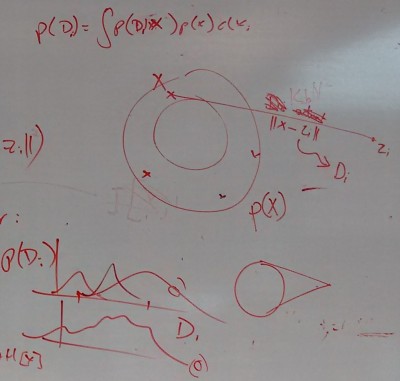 p(Di) = ∫p(Di|x)p(x)dx,
X
||x - zi||
zi
zi||)
Di
p(X)
r:
p(Di)
Di
H[x]